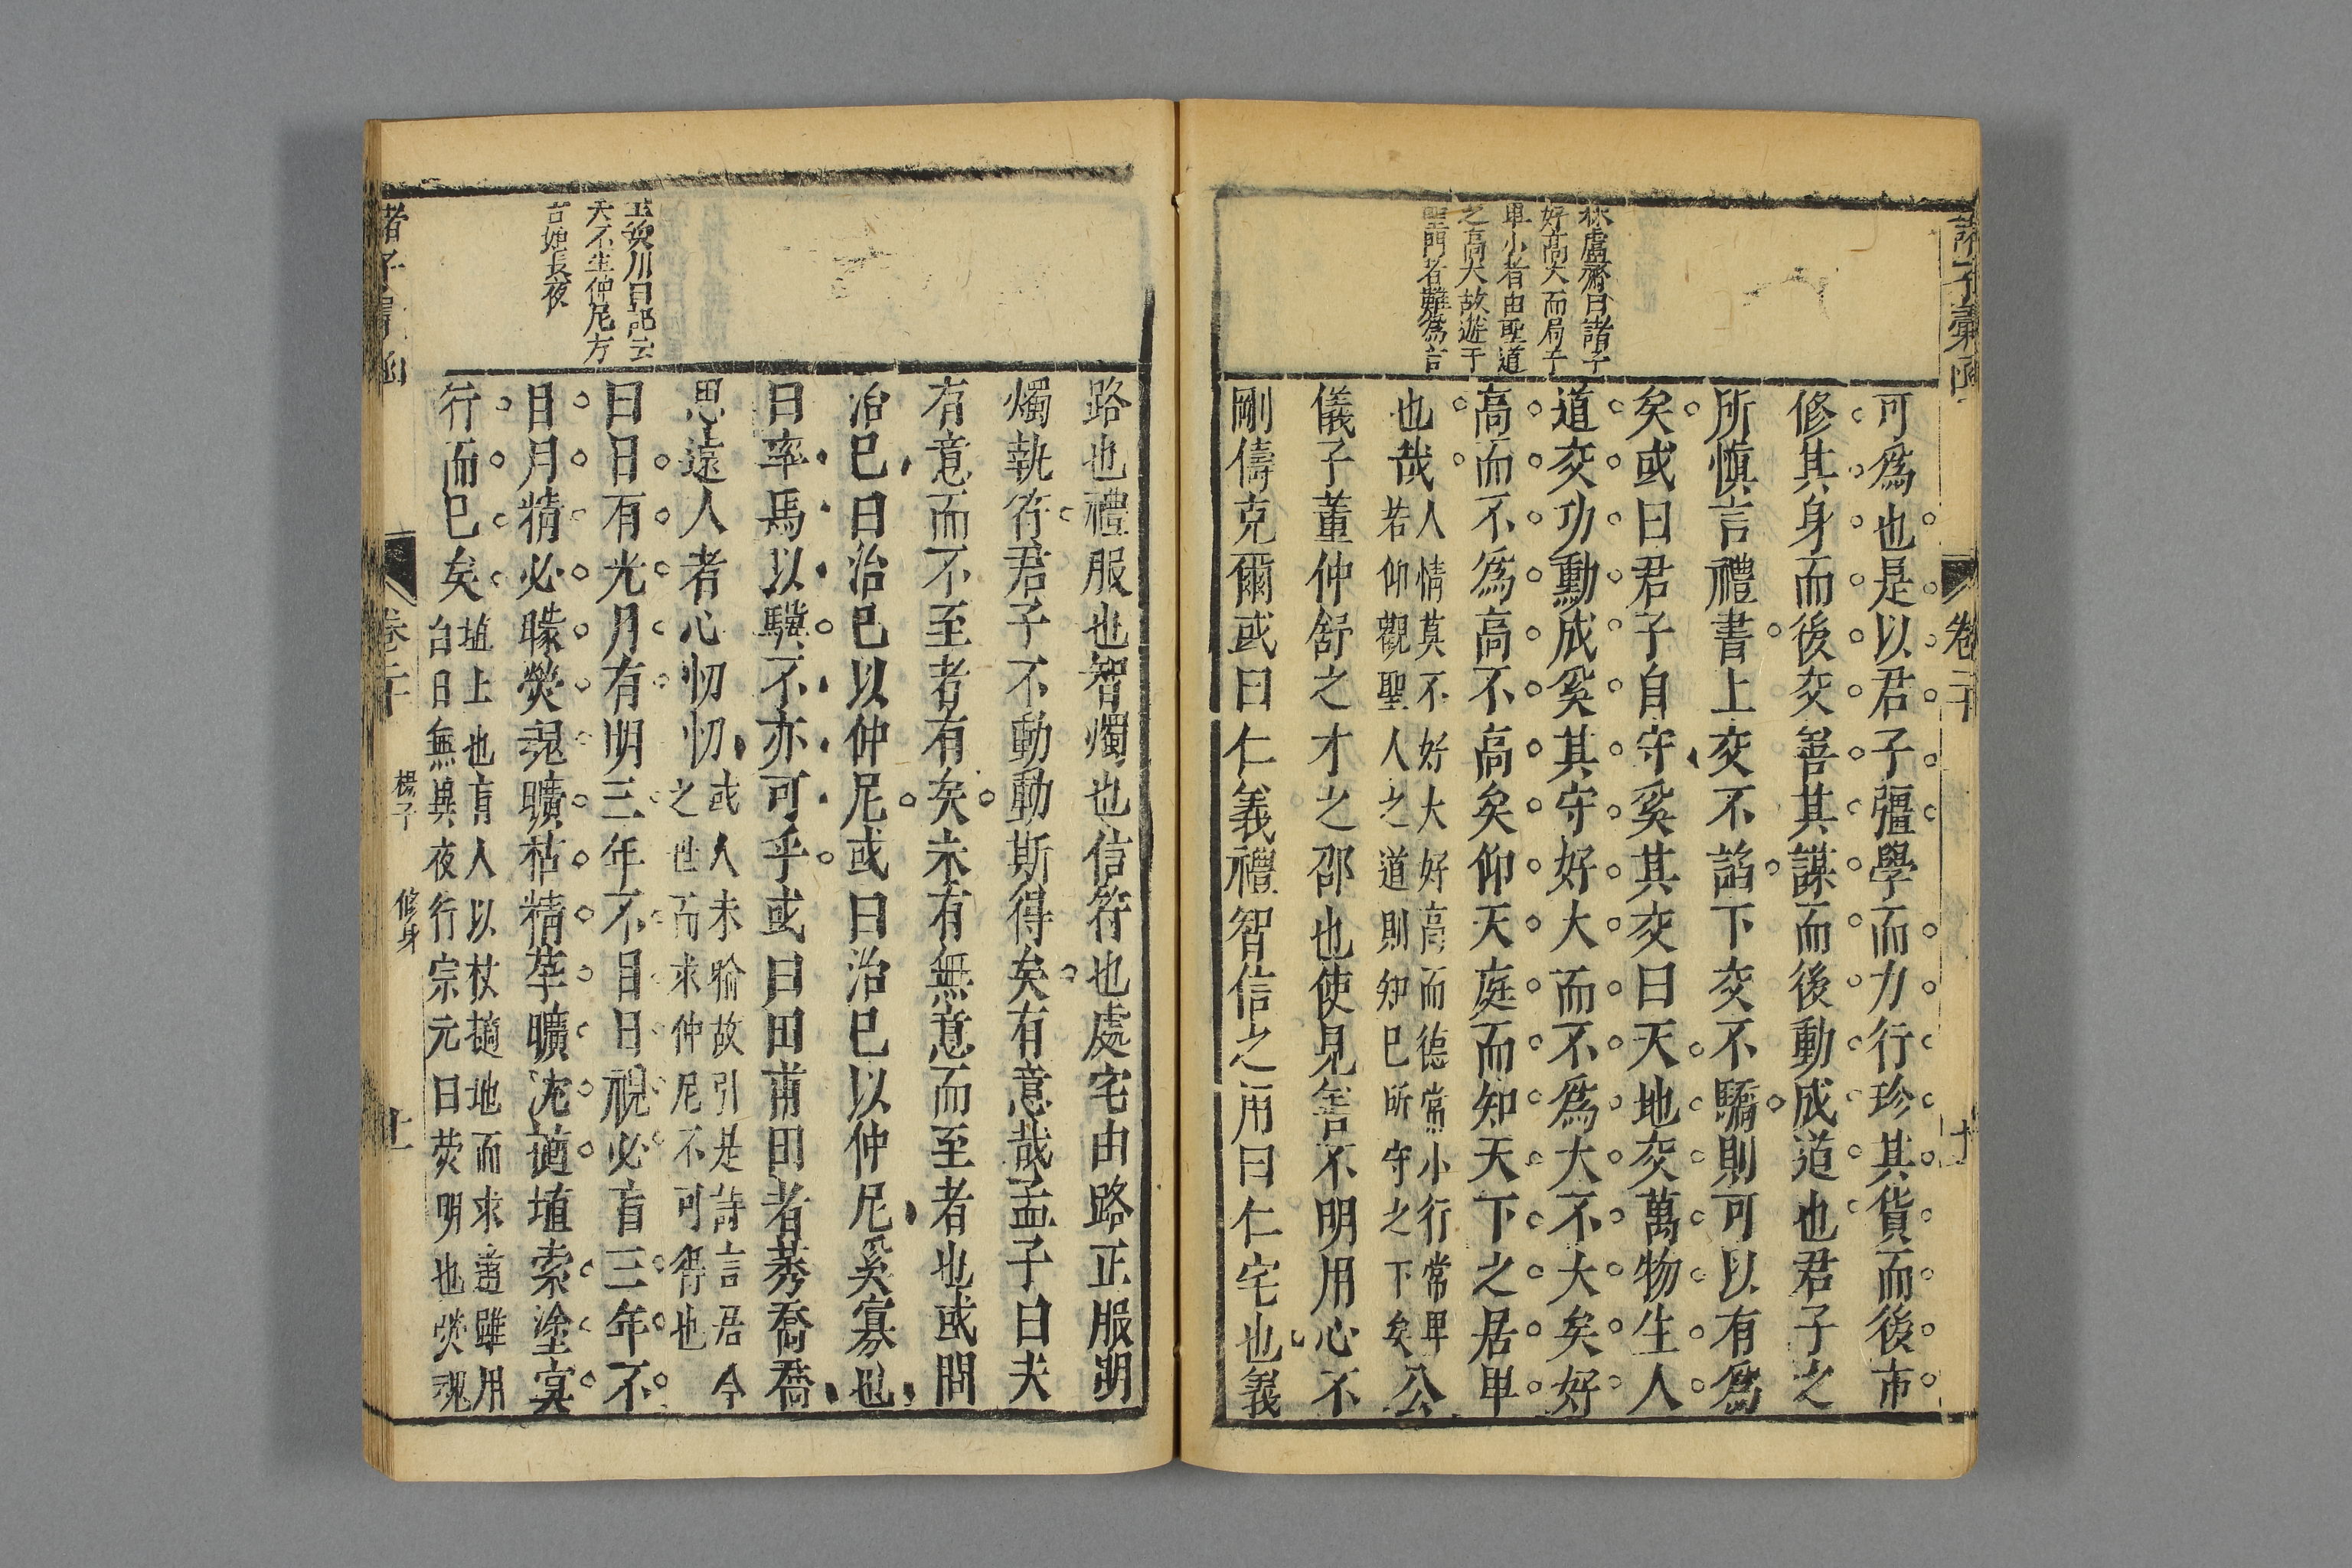 諸子彙函
卷二十
林鬳齋曰諸子
好高大而局于
卑小者由聖道
之高大故遊于
聖門者難為言
可爲也是以君子彊學而力行珍其貨而後市
修其身而後交善其謀而後動成道也君子之
所慎言禮書上交不諂下交不驕則可以有爲
矣或曰君子自守奚其交曰天地交萬物生人
道交功勳成奚其守好大而不爲大不大矣好
高而不爲高不高矣仰天庭而知天下之居卑
也哉
人情莫不好大好高而德常小行常卑
若仰觀聖人之道則知巳所守之下矣
公
儀子董仲舒之才之邵也使見善不明用心不
剛儔克爾或曰仁義禮智信之用曰仁宅也義
路也禮服也智燭也信符也處宅由路正服明
燭執符君子不動動斯得矣有意哉孟子曰夫
有意而不至者有矣未有無意而至者也或問
治巳曰治巳以仲尼或曰治巳以仲尼奚寡也
曰率馬以驥不亦可乎或曰田甫田者莠喬喬
思遠人者心忉忉
或人未喻故引是詩言居今
之世而求仲尼不可得也
曰日有光月有明三年不目日視必盲三年不
目月精必矇熒魂曠枯精莩曠沈擿埴索塗冥
行而已矣
埴土也盲人以杖擿地而求道雖用
白日無異夜行宗元曰熒明也熒魂
王奕川曰邵云
天不生仲尼方
古如長夜
諸子彙函
卷二十
楊子
修身